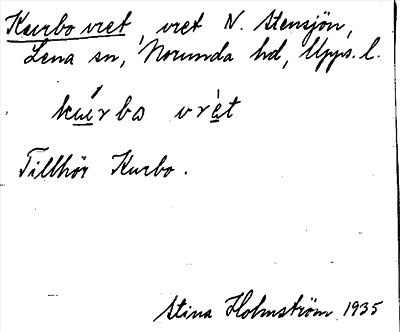 Kurbo vret, vret N. Stensjön,
Lena sn, Norunda hd, Upps. l.
kuìrbo vrèt
Tillhör Kurbo.
Stina Holmström 1935